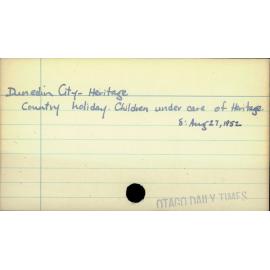 Dunedin City - Heritage
Country holiday. Children under care of Heritage.
8: Aug 27, 1952
OTAGO DAILY TIMES